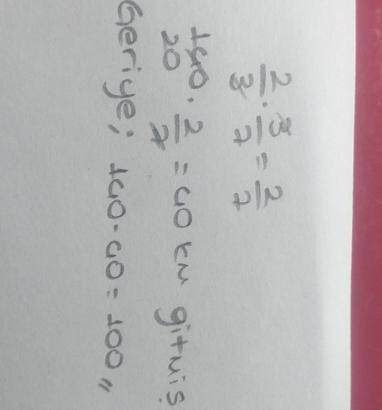 2/3 · 3/7 = 2/7
140 · 2/7 = 40 km gitmiş
20
Geriye; 140-40=100,,